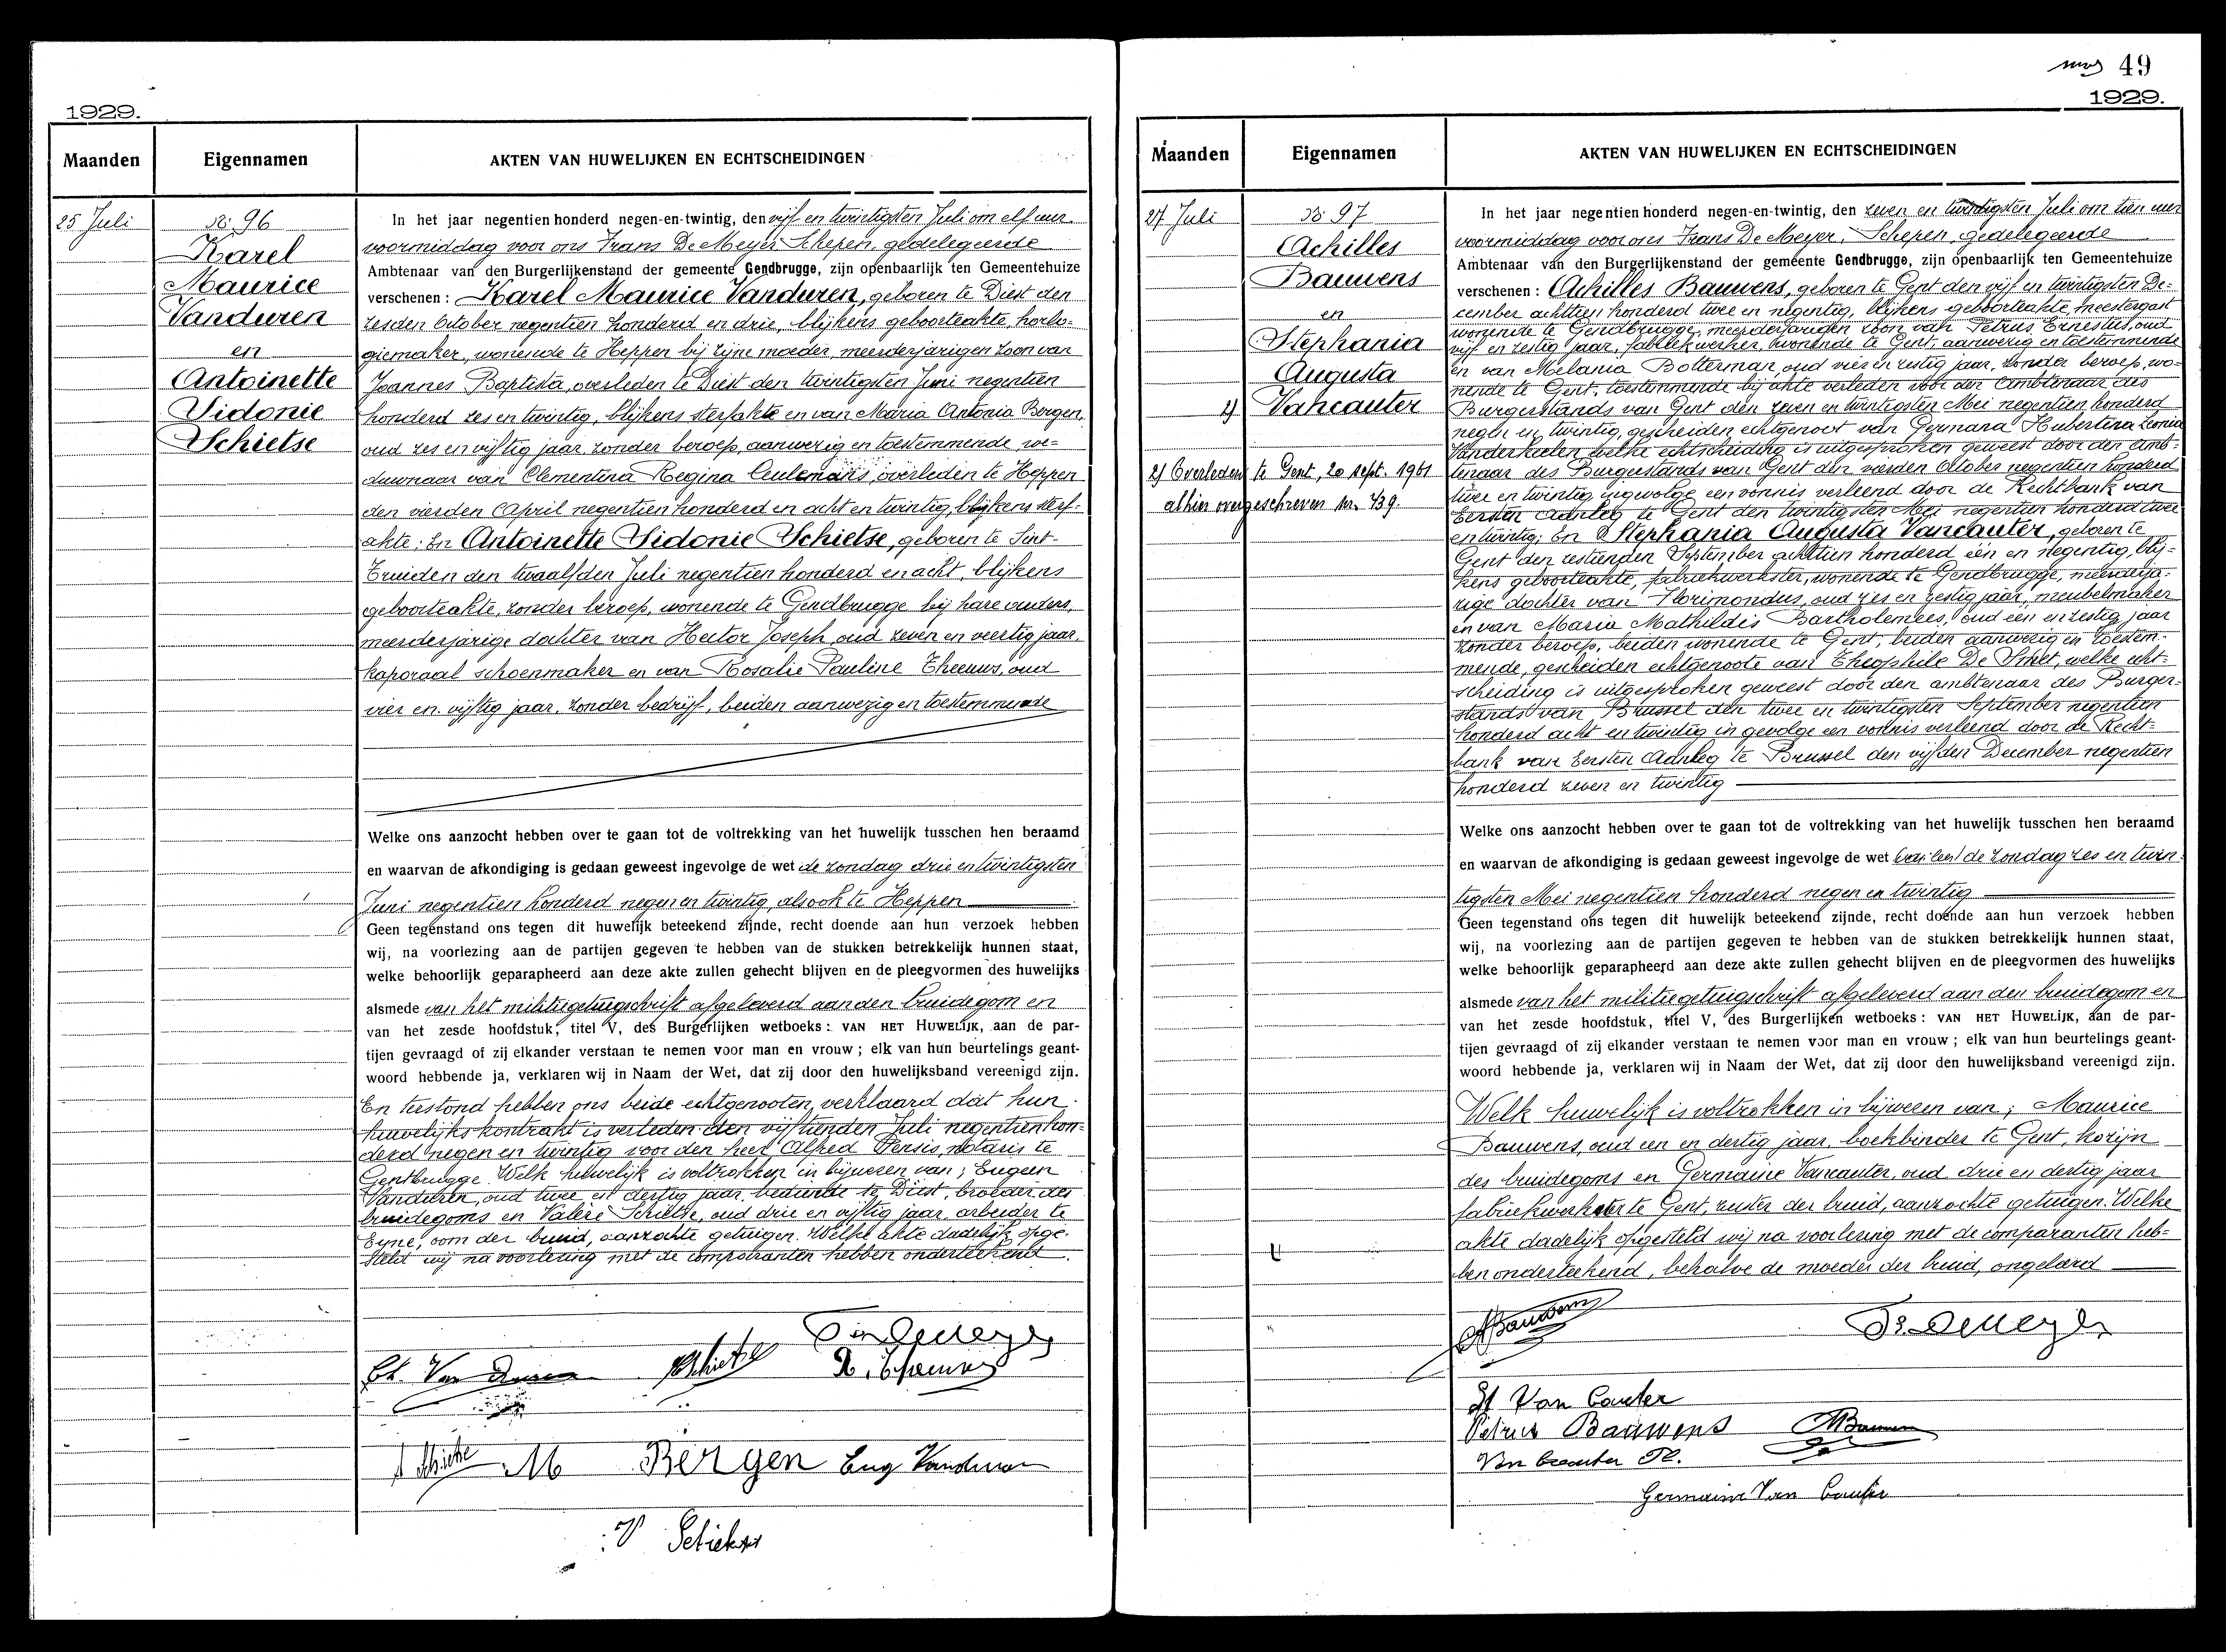 1929.
Maanden
Eigennamen
AKTEN VAN HUWELIJKEN EN ECHTSCHEIDINGEN
25 Juli
No 96
Karel
Maurice
Vanduren
en
Antoinette
Sidonie
Schietse
In het jaar negentien honderd negen-en-twintig, den vijf en twintigsten Juli om elf uur
voormiddag voor ons Frans De Meyer, Schepen, gedelegeerde
Ambtenaar van den Burgerlijkenstand der gemeente Gendbrugge, zijn openbaarlijk ten Gemeentehuize
verschenen : Karel Maurice Vanduren, geboren te Diest den
zesden October negentien honderd en drie, blijkens geboorteakte, horlo-
giemaker, wonende te Heppen bij zijne moeder, meerderjarigen zoon van
Joannes Baptista, overleden te Diest den twintigsten Juni negentien
honderd zes en twintig, blijkens sterfakte en van Maria Antonia Bergen,
oud zes en vijftig jaar zonder beroep, aanwezig en toestemmende, we-
duwnaar van Clementina Regina Ceulemans overleden te Heppen
den vierden April negentien honderd en acht en twintig, blijkens sterf-
akte; En Antoinette Sidonie Schietse, geboren te Sint-
Truiden den twaalfden Juli negentien honderd en acht, blijkens
geboorteakte, zonder beroep, wonende te Gendbrugge bij hare ouders,
meerderjarige dochter van Hector Joseph, oud zeven en veertig jaar,
kaporaal schoenmaker en van Rosalie Pauline Theeuws, oud
vier en vijftig jaar, zonder bedrijf, beiden aanwezig en toestemmende
Welke ons aanzocht hebben over te gaan tot de voltrekking van het huwelijk tusschen hen beraamd
en waarvan de afkondiging is gedaan geweest ingevolge de wet de zondag drie en twintigsten
Juni negentien honderd negen en twintig, alsook te Heppen
Geen tegenstand ons tegen dit huwelijk beteekend zijnde, recht doende aan hun verzoek hebben
wij, na voorlezing aan de partijen gegeven te hebben van de stukken betrekkelijk hunnen staat,
welke behoorlijk geparapheerd aan deze akte zullen gehecht blijven en de pleegvormen des huwelijks
alsmede van het militiegetuigschrift afgeleverd aan den bruidegom en
van het zesde hoofdstuk, titel V, des Burgerlijken wetboeks : VAN HET HUWELIJK, aan de par-
tijen gevraagd of zij elkander verstaan te nemen voor man en vrouw ; elk van hun beurtelings geant-
woord hebbende ja, verklaren wij in Naam der Wet, dat zij door den huwelijksband vereenigd zijn.
En terstond hebben ons beide echtgenooten verklaard dat hun
huwelijks kontrakt is verleden den vijftienden Juli negentien hon-
derd negen en twintig voor den heer Alfred Persis, notaris te
Gentbrugge. Welk huwelijk is voltrokken in bijwezen van; Eugeen
Vanduren, oud twee en dertig jaar, bediende te Diest, broeder des
bruidegoms en Valère Schietse, oud drie en vijftig jaar, arbeider te
Eyne, oom der bruid, aanzochte getuigen. Welke akte dadelijk opge-
steld wij na voorlezing met de comparanten hebben onderteekend.
Fr. De Meyer
Ch. Van Duren
R. Theeuws
M Bergen Eug Vanduren
V Schietse
49
1929.
Maanden
Eigennamen
AKTEN VAN HUWELIJKEN EN ECHTSCHEIDINGEN
27 Juli
No 97
Achilles
Bauwens
en
Stephania
Augusta
Vancauter
2) Overleden te Gent, 20 sept. 1961
alhier overgeschreven nr. 439.
In het jaar negentien honderd negen-en-twintig, den zeven en twintigsten Juli om tien uur
voormiddag voor ons Frans De Meyer, Schepen, gedelegeerde
Ambtenaar van den Burgerlijkenstand der gemeente Gendbrugge, zijn openbaarlijk ten Gemeentehuize
verschenen : Achilles Bauwens, geboren te Gent den vijf en twintigsten De-
cember achttien honderd twee en negentig, blijkens geboorteakte, meestergast
wonende te Gendbrugge, meerderjarigen zoon van Petrus Ernestus, oud
vijf en zestig jaar, fabriekwerker, wonende te Gent, aanwezig en toestemmende
en van Melania Botterman, oud vier en zestig jaar, zonder beroep, wo-
nende te Gent, toestemmende bij akte verleden voor den Ambtenaar des
Burgerstands van Gent den zeven en twintigsten Mei negentien honderd
negen en twintig, gescheiden echtgenoot van Germana Hubertina Leonia
Vanderkelen welke echtscheiding is uitgesproken geweest door den amb-
tenaar des Burgerstands van Gent den vierden October negentien honderd
twee en twintig ingevolge een vonnis verleend door de Rechtbank van
Eersten Aanleg te Gent den twintigsten Mei negentien honderd twee
en twintig; En Stephania Augusta Vancauter, geboren te
Gent den zestienden September achttien honderd één en negentig, blij-
kens geboorteakte, fabriekwerkster, wonende te Gendbrugge, meerderja-
rige dochter van Florimondus, oud zes en zestig jaar, meubelmaker
en van Maria Mathildis Bartholemees, oud één en zestig jaar
zonder beroep, beiden wonende te Gent, beiden aanwezig en toestem-
mende, gescheiden echtgenoote van Theophile De Smet, welke echt-
scheiding is uitgesproken geweest door den ambtenaar des Burger-
stands van Brussel den twee en twintigsten September negentien
honderd acht en twintig in gevolge een vonnis verleend door de Recht-
bank van Eersten Aanleg te Brussel den vijfden December negentien
honderd zeven en twintig
Welke ons aanzocht hebben over te gaan tot de voltrekking van het huwelijk tusschen hen beraamd
en waarvan de afkondiging is gedaan geweest ingevolge de wet de zondag zes en twin-
tigsten Mei negentien honderd negen en twintig
Geen tegenstand ons tegen dit huwelijk beteekend zijnde, recht doende aan hun verzoek hebben
wij, na voorlezing aan de partijen gegeven te hebben van de stukken betrekkelijk hunnen staat,
welke behoorlijk geparapheerd aan deze akte zullen gehecht blijven en de pleegvormen des huwelijks
alsmede van het militiegetuigschrift afgeleverd aan den bruidegom en
van het zesde hoofdstuk, titel V, des Burgerlijken wetboeks : VAN HET HUWELIJK, aan de par-
tijen gevraagd of zij elkander verstaan te nemen voor man en vrouw ; elk van hun beurtelings geant-
woord hebbende ja, verklaren wij in Naam der Wet, dat zij door den huwelijksband vereenigd zijn.
Welk huwelijk is voltrokken in bijwezen van; Maurice
Bauwens, oud een en dertig jaar, boekbinder te Gent, kozijn
des bruidegoms en Germaine Vancauter, oud drie en dertig jaar
fabriekwerkster te Gent, zuster der bruid, aanzochte getuigen. Welke
akte dadelijk opgesteld wij na voorlezing met de comparanten heb-
ben onderteekend, behalve de moeder der bruid, ongeleerd
ABauwens
Fr. De Meyer
St Van Cauter
Petrus Bauwens MBauwens
Van Cauter Fl.
Germaine Van Cauter